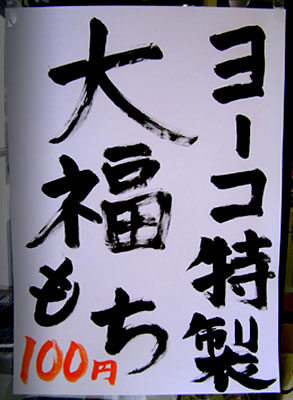 ヨーコ特製
大福もち
100円